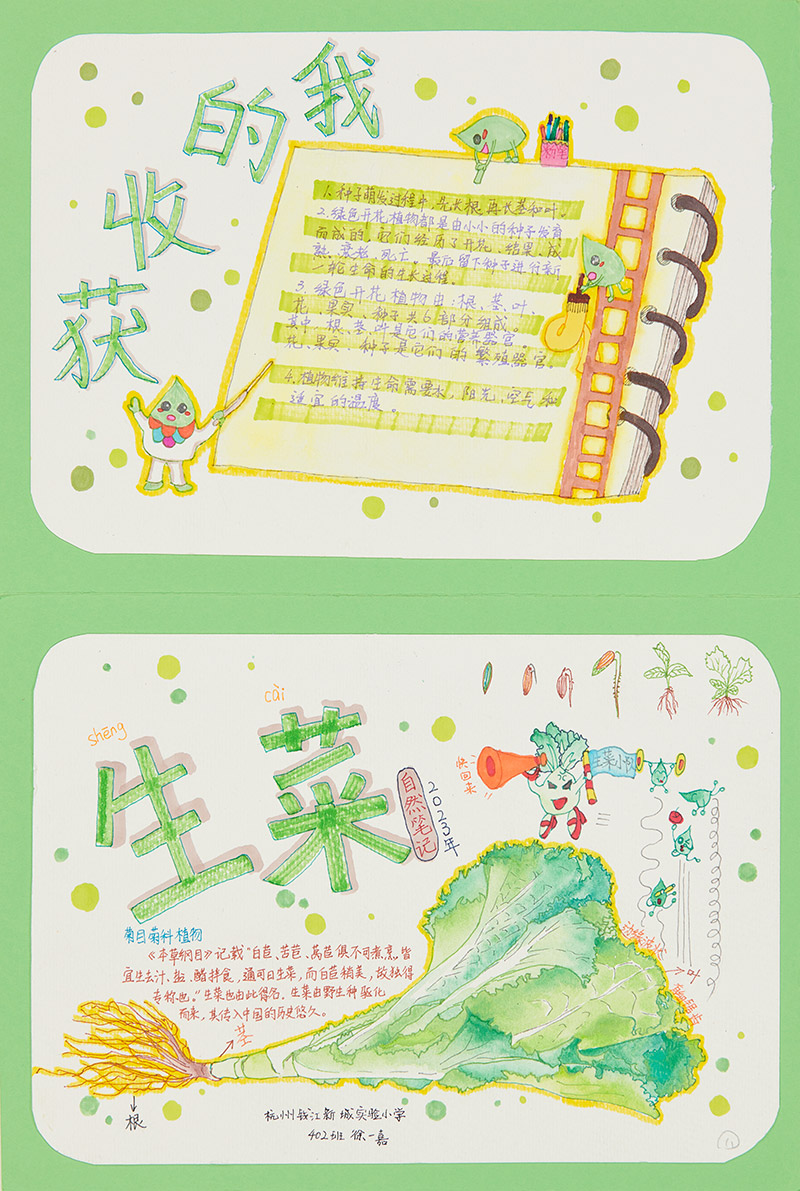 我的收获
1.种子萌发过程中,先长根再长茎和叶。
2.绿色开花植物都是由小小的种子发育
而成的,它们经历了开花、结果、成
熟、衰老、死亡。最后留下种子进行新
一轮生命的生长过程。
3.绿色开花植物由:根、茎、叶、
花、果实、种子共6部分组成。
其中,根、茎、叶是它们的营养器官。
花、果实、种子是它们的繁殖器官。
4.植物维持生命需要水,阳光,空气和
适宜的温度。
shēng cài
生菜
自然笔记
2023年
快回来!!
生菜小队
菊目菊科植物
《本草纲目》记载"白苣、苦苣、莴苣俱不可煮烹,皆
宜生去汁,盐、醋拌食,通可曰生菜,而白苣稍美,故独得
专称也。"生菜也由此得名。生菜由野生种驯化
而来,其传入中国的历史悠久。
茎
叶
根
杭州钱江新城实验小学
402班 徐一嘉